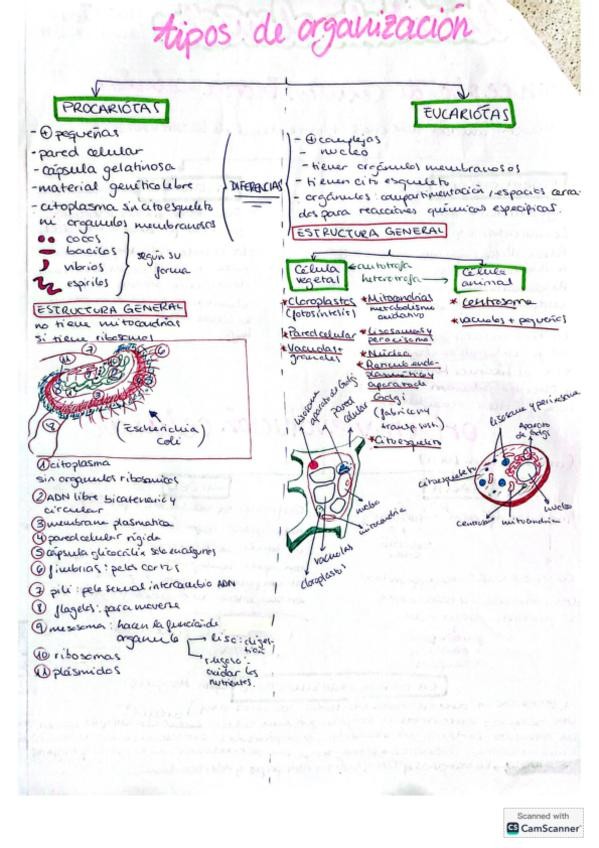 tipos de organización
PROCARIOTAS
- ⊕ pequeñas
- pared celular
- cápsula gelatinosa
- material genético libre
- citoplasma sin citoesqueleto
ni organulos membranosos
cocos
bacilos
vibrios
espirilos
según su
forma
DIFERENCIAS
EUCARIOTAS
- ⊕ complejas
- nucleo
- tienen orgánulos membranosos
- tienen citoesqueleto
- orgánulos: compartimentación / espacios cerra-
dos para reacciones químicas específicas.
ESTRUCTURA GENERAL
Célula
vegetal
autótrofa
heterótrofa
Célula
animal
* Cloroplastos
(fotosíntesis)
* Pared celular
* Vacuolas +
grandes
* Mitocondrias
metabolismo
oxidativo
* Lisosomas y
peroxisomas
* Núcleo
aparato de
Golgi
(fabrican y
transportan)
* Citoesqueleto
* Centrosoma
* vacuolas + pequeñas
ESTRUCTURA GENERAL
no tiene mitocondrias
si tiene ribosomas
11
7
6
(Escherichia
coli)
① citoplasma
sin organulos ribosomicos
② ADN libre bicatenario y
circular
③ membrana plasmatica
④ pared celular rigida
⑤ cápsula glicocálix solo en algunos
⑥ fimbrias: pelos cortos
⑦ pili: pelo sexual intercambio ADN
⑧ flagelos: para moverse
⑨ mesosoma: hacen la función de
organulo
liso: diges-
tión
rugoso:
oxidar los
nutrientes.
⑩ ribosomas
⑪ plásmidos
lisosoma
aparato de Golgi
Pared
celular
nucleo
mitocondria
vacuolas
cloroplastos
lisosoma y peroxisoma
aparato
de Golgi
citoesqueleto
nucleo
mitocondria
centriolo
Scanned with
CS CamScanner